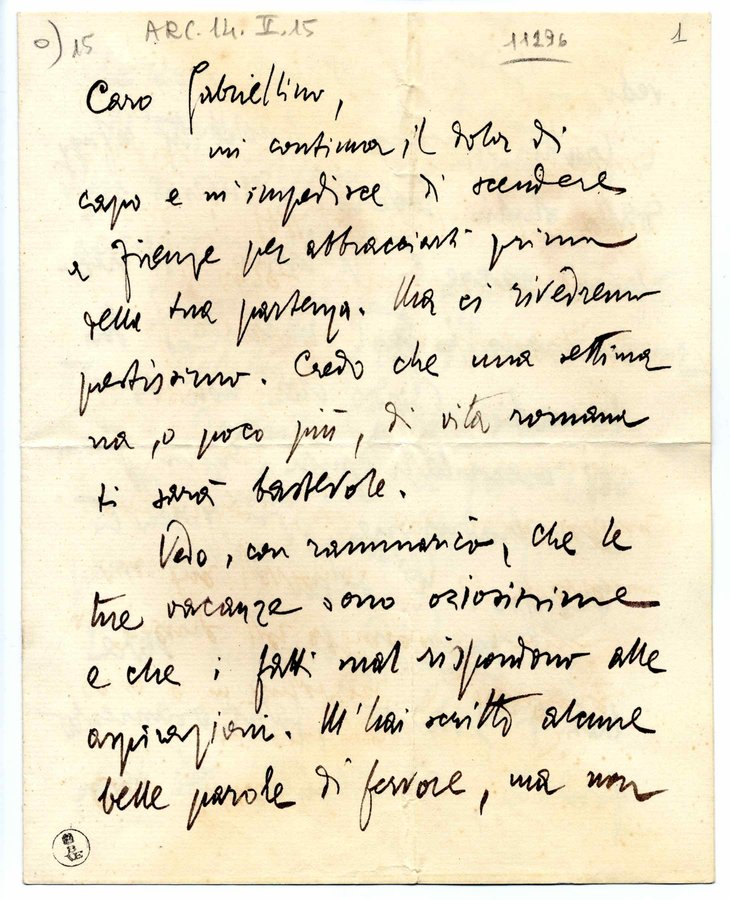 o) 15 ARC. 14. II. 15 11296 1
Caro Gabriellino,
mi continua il dolor di
capo e m'impedisce di scendere
a Firenze per abbracciarti prima
della tua partenza. Ma ci rivedremo
prestissimo. Credo che una settima
na, o poco più, di vita romana
ti sarà bastevole.
Vedo, con rammarico, che le
tue vacanze sono oziosissime
e che i fatti mal rispondono alle
aspirazioni. M'hai scritto alcune
belle parole di fervore, ma non